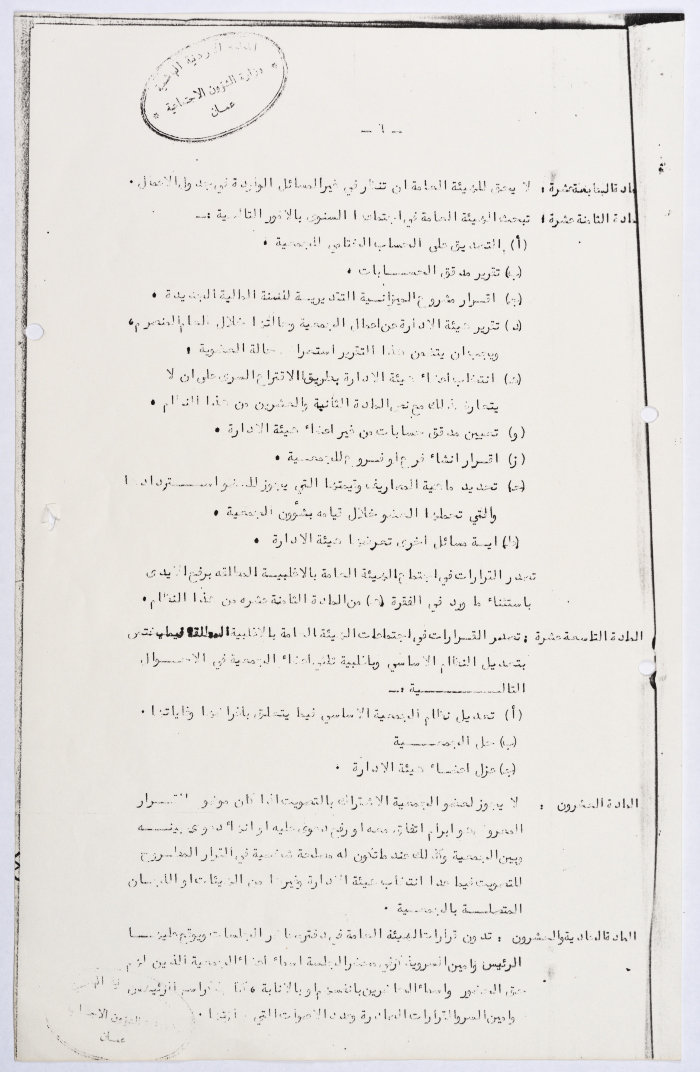 المملكة الاردنية الهاشمية
وزارة الشؤون الاجتماعية
عمان
- ٦ -
المادة السابعة عشرة : لا يحق للهيئة العامة ان تنظر في غير المسائل الواردة في جدول الاعمال .
المادة الثامنة عشرة : تبحث الهيئة العامة في اجتماعها السنوى بالامور التالية :-
(أ) التصديق على الحساب الختامي للجمعية .
(ب) تقرير مدقق الحسابات .
(ج) اقرار مشروع الميزانية التقديرية للسنة المالية الجديدة .
(د) تقرير هيئة الادارة عن اعمال الجمعية وحالتها خلال العام المنصرم،
ويجب ان يتضمن هذا التقرير استعراض حالة العضوية .
(هـ) انتخاب اعضاء هيئة الادارة بطريق الاقتراع السرى على ان لا
يتعارض ذلك مع نص المادة الثانية والعشرين من هذا النظام .
(و) تعيين مدقق حسابات من غير اعضاء هيئة الادارة .
(ز) اقرار انشاء فرع او فروع للجمعية .
(ح) تحديد ماهية المصاريف وقيمتها التي يجوز للعضو استردادها
والتي تحملها العضو خلال قيامه بشؤون الجمعية .
(ط) اية مسائل اخرى تعرضها هيئة الادارة .
تصدر القرارات في اجتماع الهيئة العامة بالاغلبية المطلقة برفع الايدى
باستثناء ما ورد في الفقرة (هـ) من المادة الثامنة عشره من هذا النظام .
المادة التاسعة عشرة : تصدر القرارات في اجتماعات الهيئة العامة بالاغلبية المطلقة فيما يختص
بتعديل النظام الاساسي وباغلبية ثلثي اعضاء الجمعية في الاحوال
التالية :-
(أ) تعديل نظام الجمعية الاساسي فيما يتعلق باغراضها وغاياتها .
(ب) حل الجمعية
(ج) عزل اعضاء هيئة الادارة .
المادة العشرون : لا يجوز لعضو الجمعية الاشتراك بالتصويت اذا كان موضوع القرار
المعروض هو ابرام اتفاق معه او رفع دعوى عليه او انهاء دعوى بينه
وبين الجمعية وكذلك عندما تكون له مصلحة شخصية في القرار المطروح
للتصويت فيما عدا انتخاب هيئة الادارة وغيرها من الهيئات او اللجان
المتصلة بالجمعية .
المادة الحادية والعشرون : تدون قرارات الهيئة العامة في دفتر محاضر الجلسات ويوقع عليها
الرئيس وامين السر ويذكر في محضر الجلسة اسماء اعضاء الجمعية الذين لهم
حق الحضور واسماء الحاضرين بانفسهم او بالانابة ، كما يذكر اسم الرئيس
وامين السر والقرارات الصادرة وعدد الاصوات التي
عمان